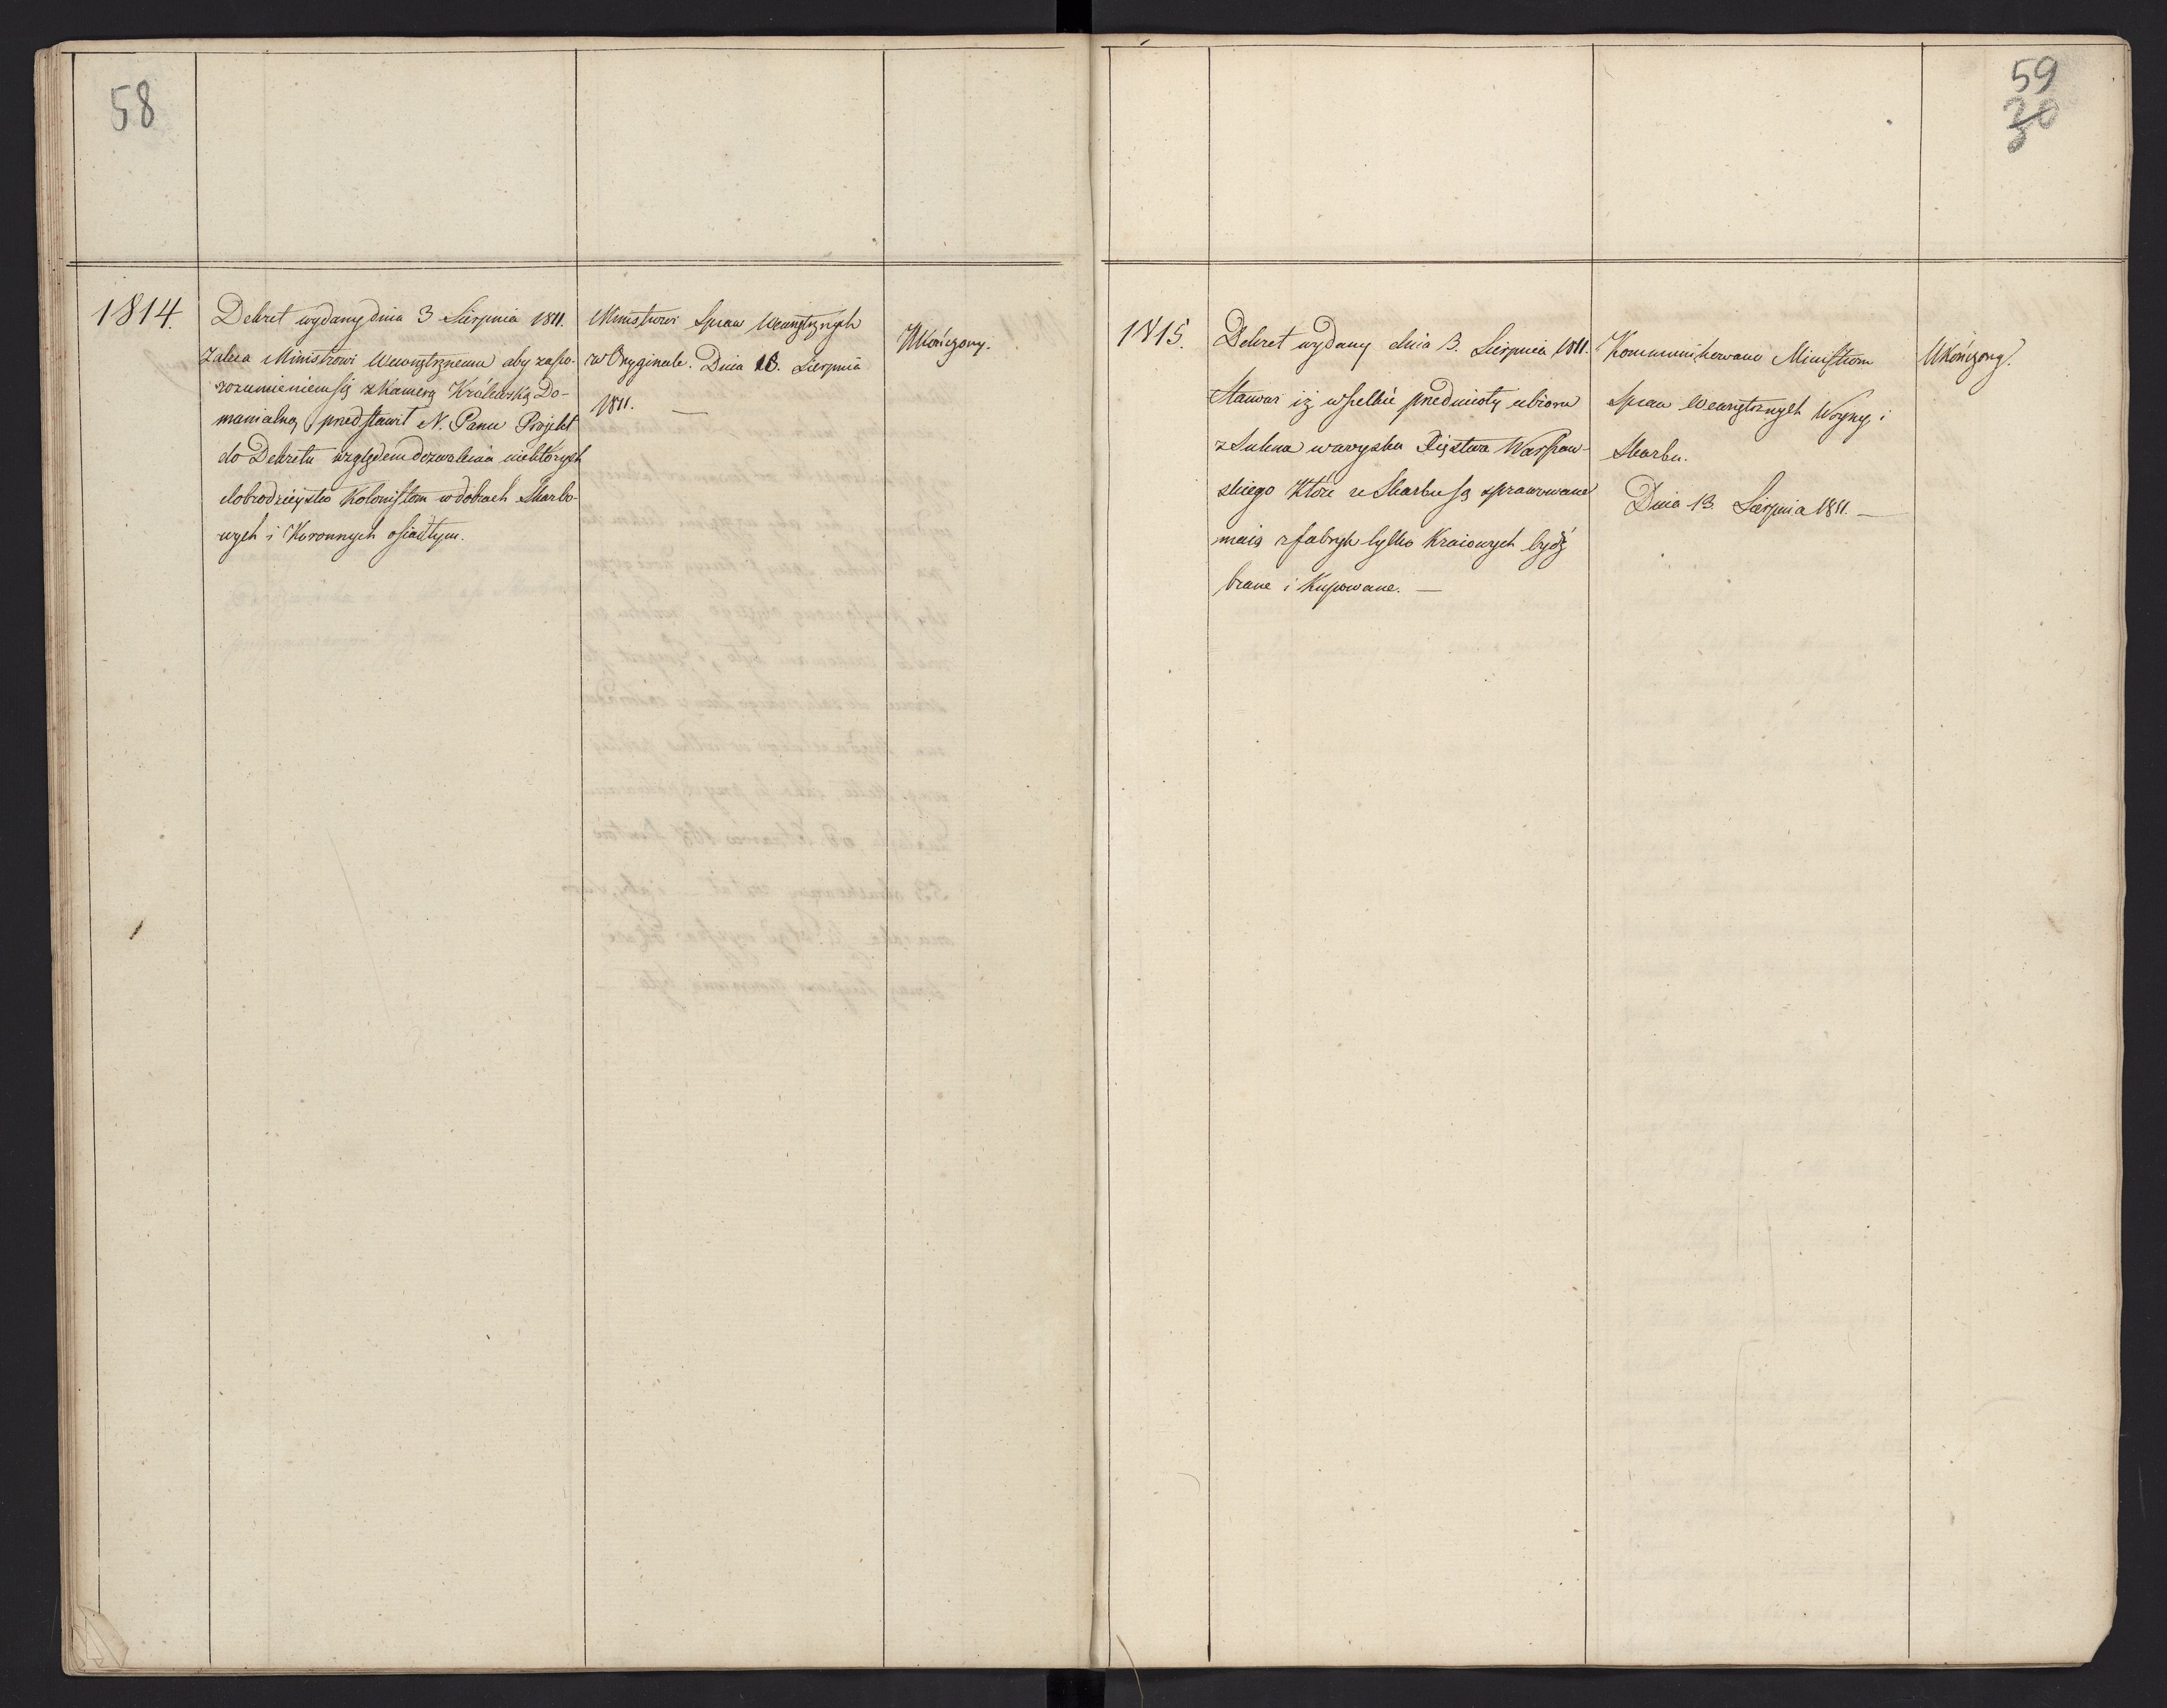 58
1814.
Dekret wydany dnia 3 Sierpnia 1811.
zaleca Ministrowi Wewnętrznemu aby zapo-
rozumieniem się z Kamerą Królewską Do-
manialną, przedstawił N. Panu Projekt
do Dekretu względem dozwolenia niektórych
dobrodzieystw Kolonistom w dobrach Skarbo-
wych i Koronnych osiadłym.
Ministrowi Spraw Wewnętrznych
w Oryginale. Dnia 13. Sierpnia
1811. —
Ukończony.
59
30
1815.
Dekret wydany dnia 3. Sierpnia 1811.
Stanowi iż wszelkie przedmioty ubioru
z Sukna w woysku Xięstwa Warszaw-
skiego które ze Skarbu są sprawowane
maią z fabryk tylko Kraiowych bydź
brane i Kupowane. —
Kommunikowano Ministrom
Spraw Wewnętrznych Woyny i
Skarbu.
Dnia 13. Sierpnia 1811. —
Ukończony.